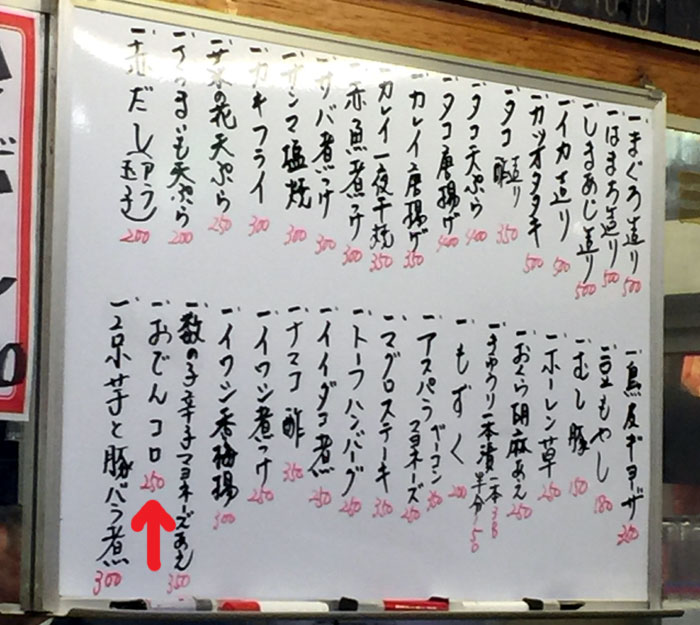 一、まぐろ造り 500
一、はまち造り 500
一、しまあじ造り 500
一、イカ造り 400
一、カツオタタキ 500
一、タコ 造り 酢 350
一、タコ天ぷら 400
一、タコ唐揚げ 400
一、カレイ唐揚げ 350
一、カレイ一夜干焼 350
一、赤魚煮つけ 300
一、サバ煮つけ 300
一、サンマ塩焼 300
一、カキフライ 300
一、菜の花天ぷら 250
一、さつまいも天ぷら 200
一、赤だし(アラ 玉子) 200
一、鳥皮ギョーザ
一、豆もやし 180
一、むし豚 150
一、ホーレン草 250
一、おくら胡麻あえ 250
一、きゅうり一本漬 一本 半分 50
一、もずく 200
一、アスパラ ベーコン マヨネーズ 250
一、マグロステーキ 350
一、トーフハンバーグ 250
一、イイダコ煮 250
一、ナマコ酢 350
一、イワシ煮つけ 250
一、イワシ香梅揚 300
一、数の子辛子マヨネーズあえ 350
一、おでんコロ 250
一、コ芋と豚バラ煮 300